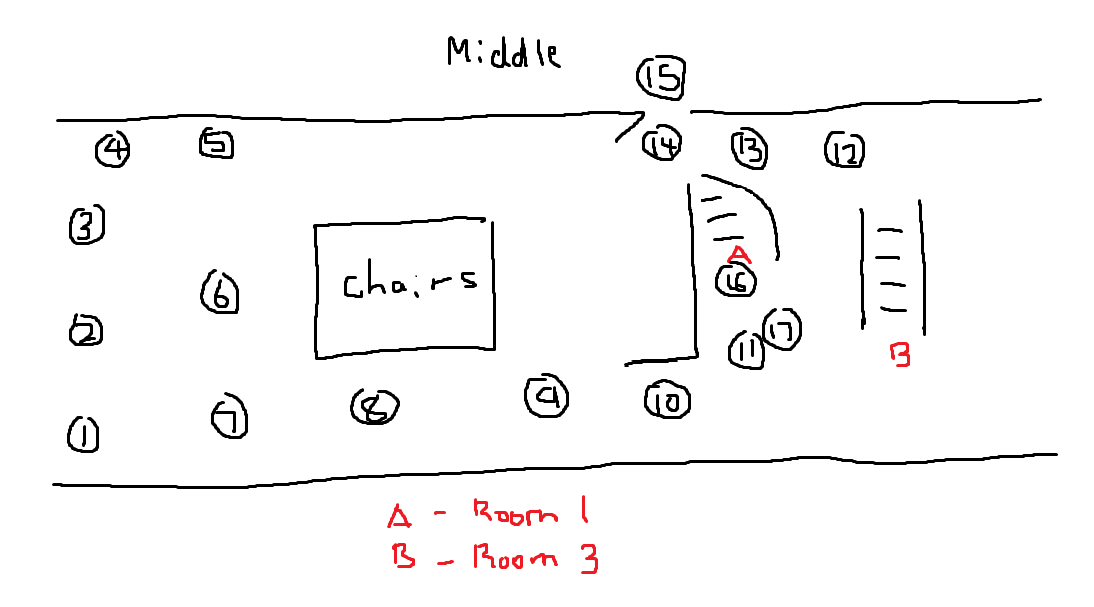 Middle
15
4 5 14 13 12
3
A
6 chairs 16
2 11 17 B
1 7 8 9 10
A - Room 1
B - Room 3